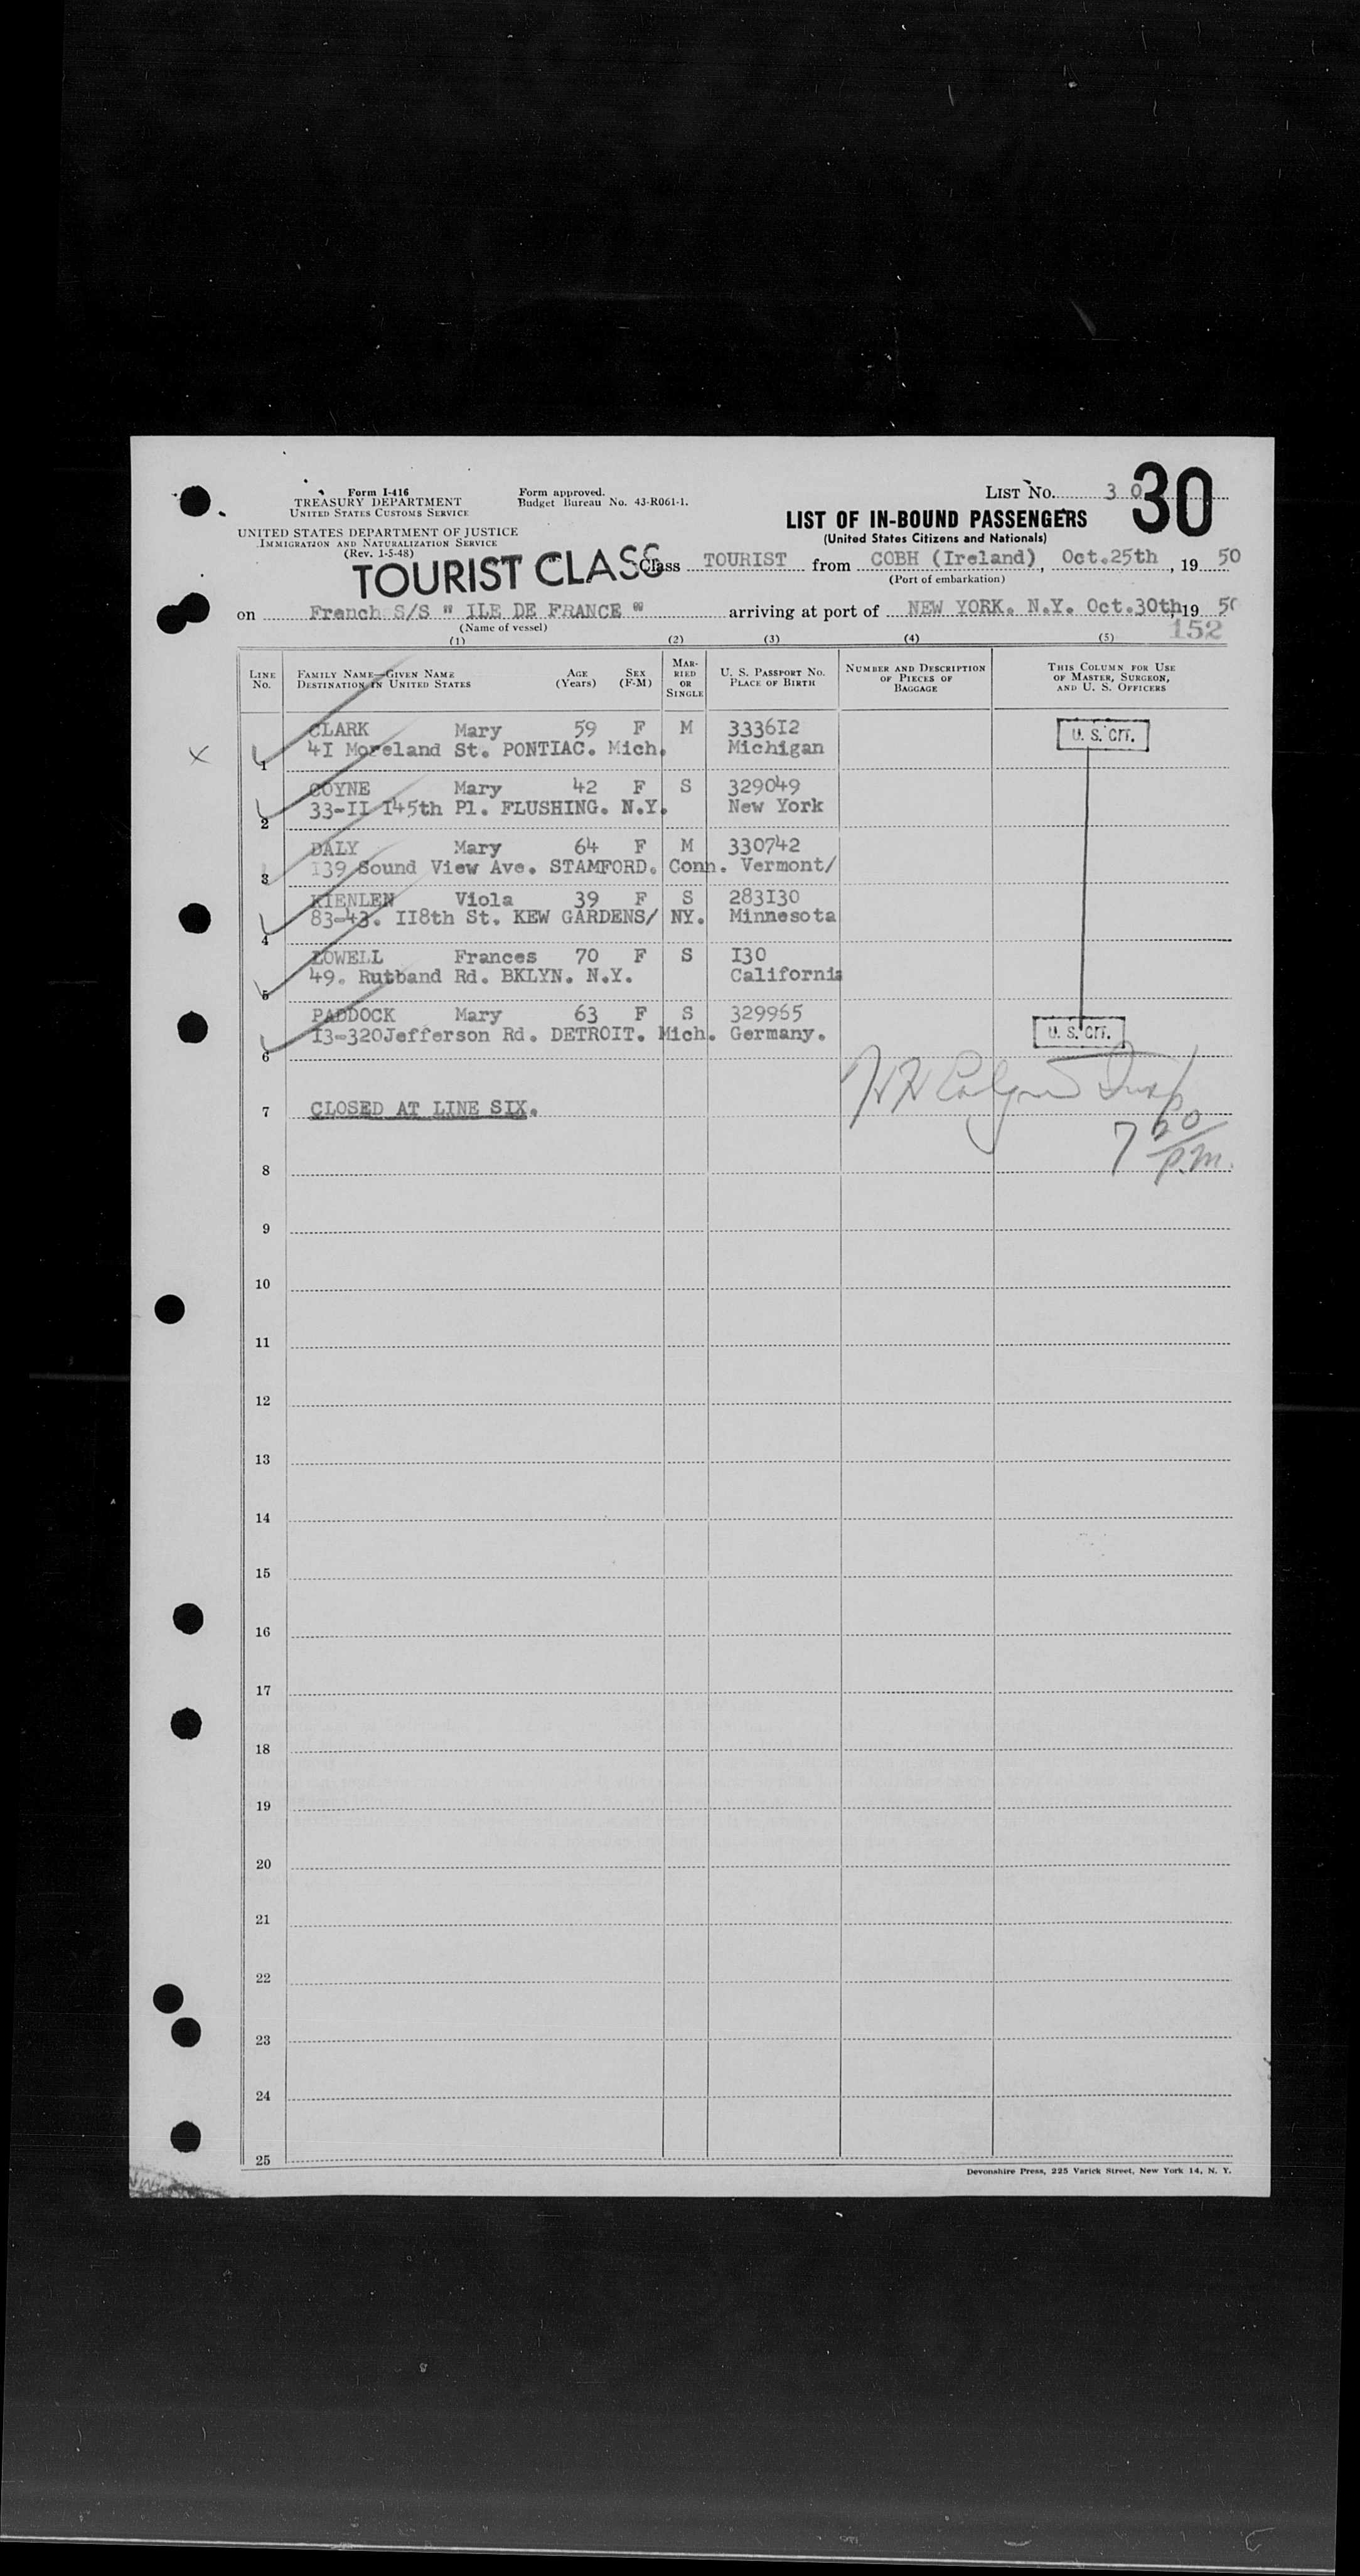 Form I-416
TREASURY DEPARTMENT
UNITED STATES CUSTOMS SERVICE
Form approved.
Budget Bureau No. 43-R061-1.
LIST No. 30
30
UNITED STATES DEPARTMENT OF JUSTICE
IMMIGRATION AND NATURALIZATION SERVICE
(Rev. 1-5-48)
LIST OF IN-BOUND PASSENGERS
(United States Citizens and Nationals)
TOURIST CLASS
Class TOURIST from COBH (Ireland), Oct.25th, 19 50
(Port of embarkation)
on French S/S " ILE DE FRANCE " arriving at port of NEW YORK. N.Y. Oct.30th,19 50
(Name of vessel)
152
(1) (2) (3) (4) (5)
LINE No. FAMILY NAME—GIVEN NAME DESTINATION IN UNITED STATES AGE (Years) SEX (F-M) MARRIED OR SINGLE U. S. PASSPORT NO. PLACE OF BIRTH NUMBER AND DESCRIPTION OF PIECES OF BAGGAGE THIS COLUMN FOR USE OF MASTER, SURGEON, AND U. S. OFFICERS
CLARK Mary 59 F M 3336I2 U. S. CIT.
X 1 4I Moreland St. PONTIAC. Mich. Michigan
COYNE Mary 42 F S 329049
2 33-II I45th Pl. FLUSHING. N.Y. New York
DALY Mary 64 F M 330742
3 I39 Sound View Ave. STAMFORD. Conn. Vermont/
KIENLEN Viola 39 F S 283I30
4 83-43. II8th St. KEW GARDENS/ NY. Minnesota
LOWELL Frances 70 F S I30
5 49. Rutband Rd. BKLYN. N.Y. California
PADDOCK Mary 63 F S 329965
6 I3-320Jefferson Rd. DETROIT. Mich. Germany. U. S. CIT.
7 CLOSED AT LINE SIX.
7
p.m.
8
9
10
11
12
13
14
15
16
17
18
19
20
21
22
23
24
25
Devonshire Press, 225 Varick Street, New York 14, N. Y.